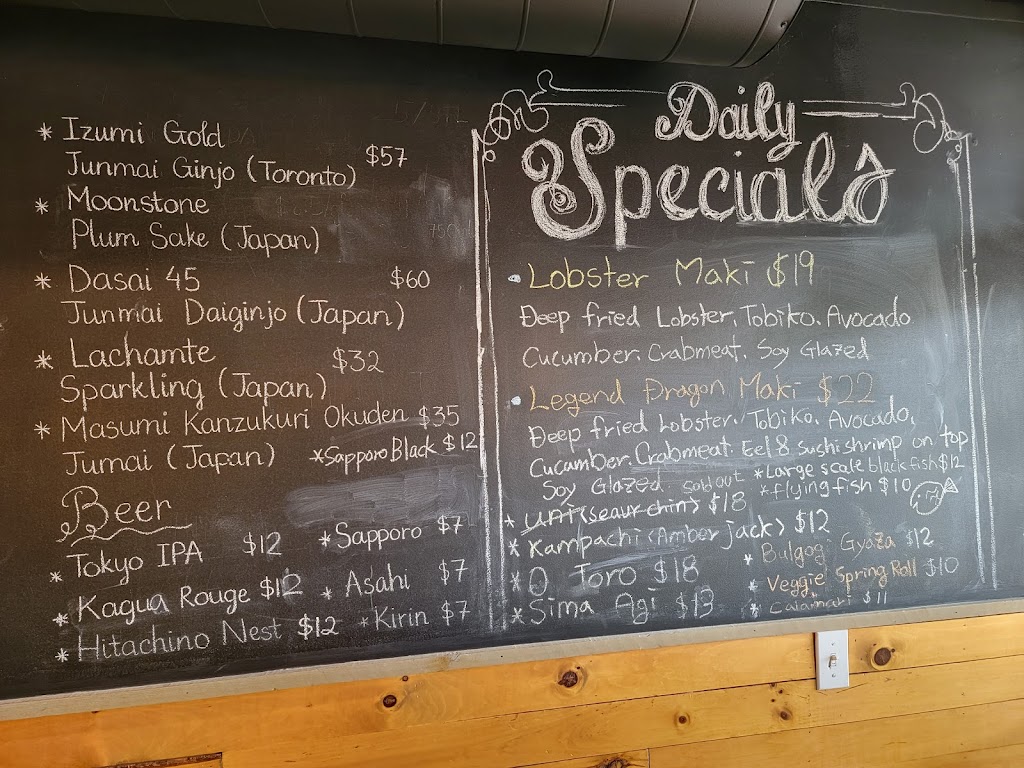 * Izumi Gold
Junmai Ginjo (Toronto) $57
* Moonstone
Plum Sake (Japan)
* Dasai 45 $60
Junmai Daiginjo (Japan)
* Lachamte $32
Sparkling (Japan)
* Masumi Kanzukuri Okuden $35
Jumai (Japan) *Sapporo Black $12
Beer
* Tokyo IPA $12 *Sapporo $7
* Kagua Rouge $12 * Asahi $7
* Hitachino Nest $12 *Kirin $7
Daily
Specials
Lobster Maki $19
Deep fried Lobster, Tobiko, Avocado
Cucumber, Crabmeat, Soy Glazed
Legend Dragon Maki $22
Deep fried Lobster, Tobiko, Avocado,
Cucamber, Crabmeat, Eel & Sushi shrimp on top
Soy Glazed
* Large scale black fish $12
* flying fish $10
sold out
* uni (seaurchin) $18
* Kampachi (Amber jack) $12
* O Toro $18
* Sima Agi $13
* Bulgogi Gyoza $12
* Veggie Spring Roll $10
* Calamari $11